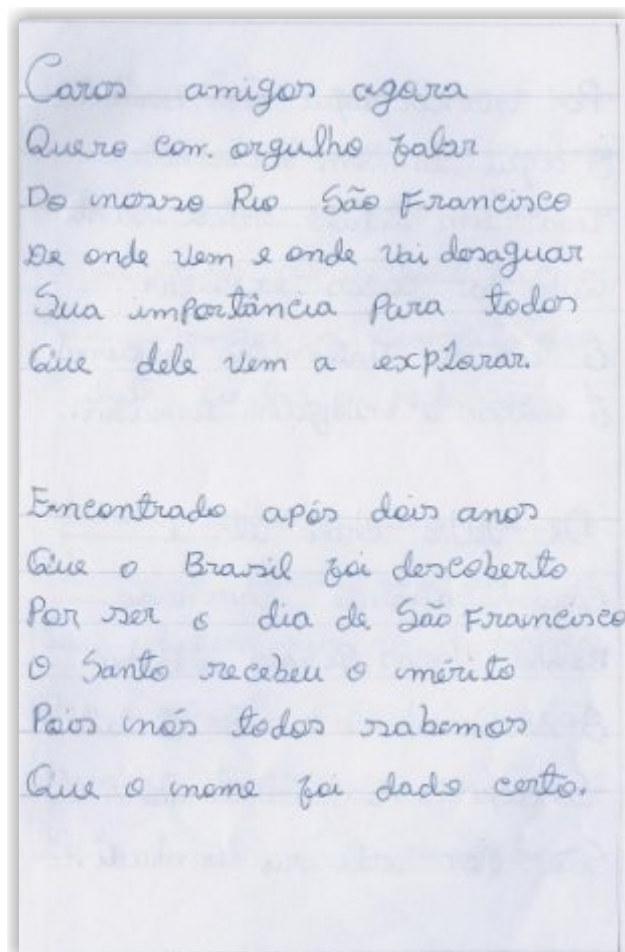 Caros amigos agora
Quero com orgulho falar
Do nosso Rio São Francisco
De onde vem e onde vai desaguar
Sua importância para todos
Que dele vem a explorar.
Encontrado após dois anos
Que o Brasil foi descoberto
Por ser o dia de São Francisco
O Santo recebeu o mérito
Pois nós todos sabemos
Que o nome foi dado certo.